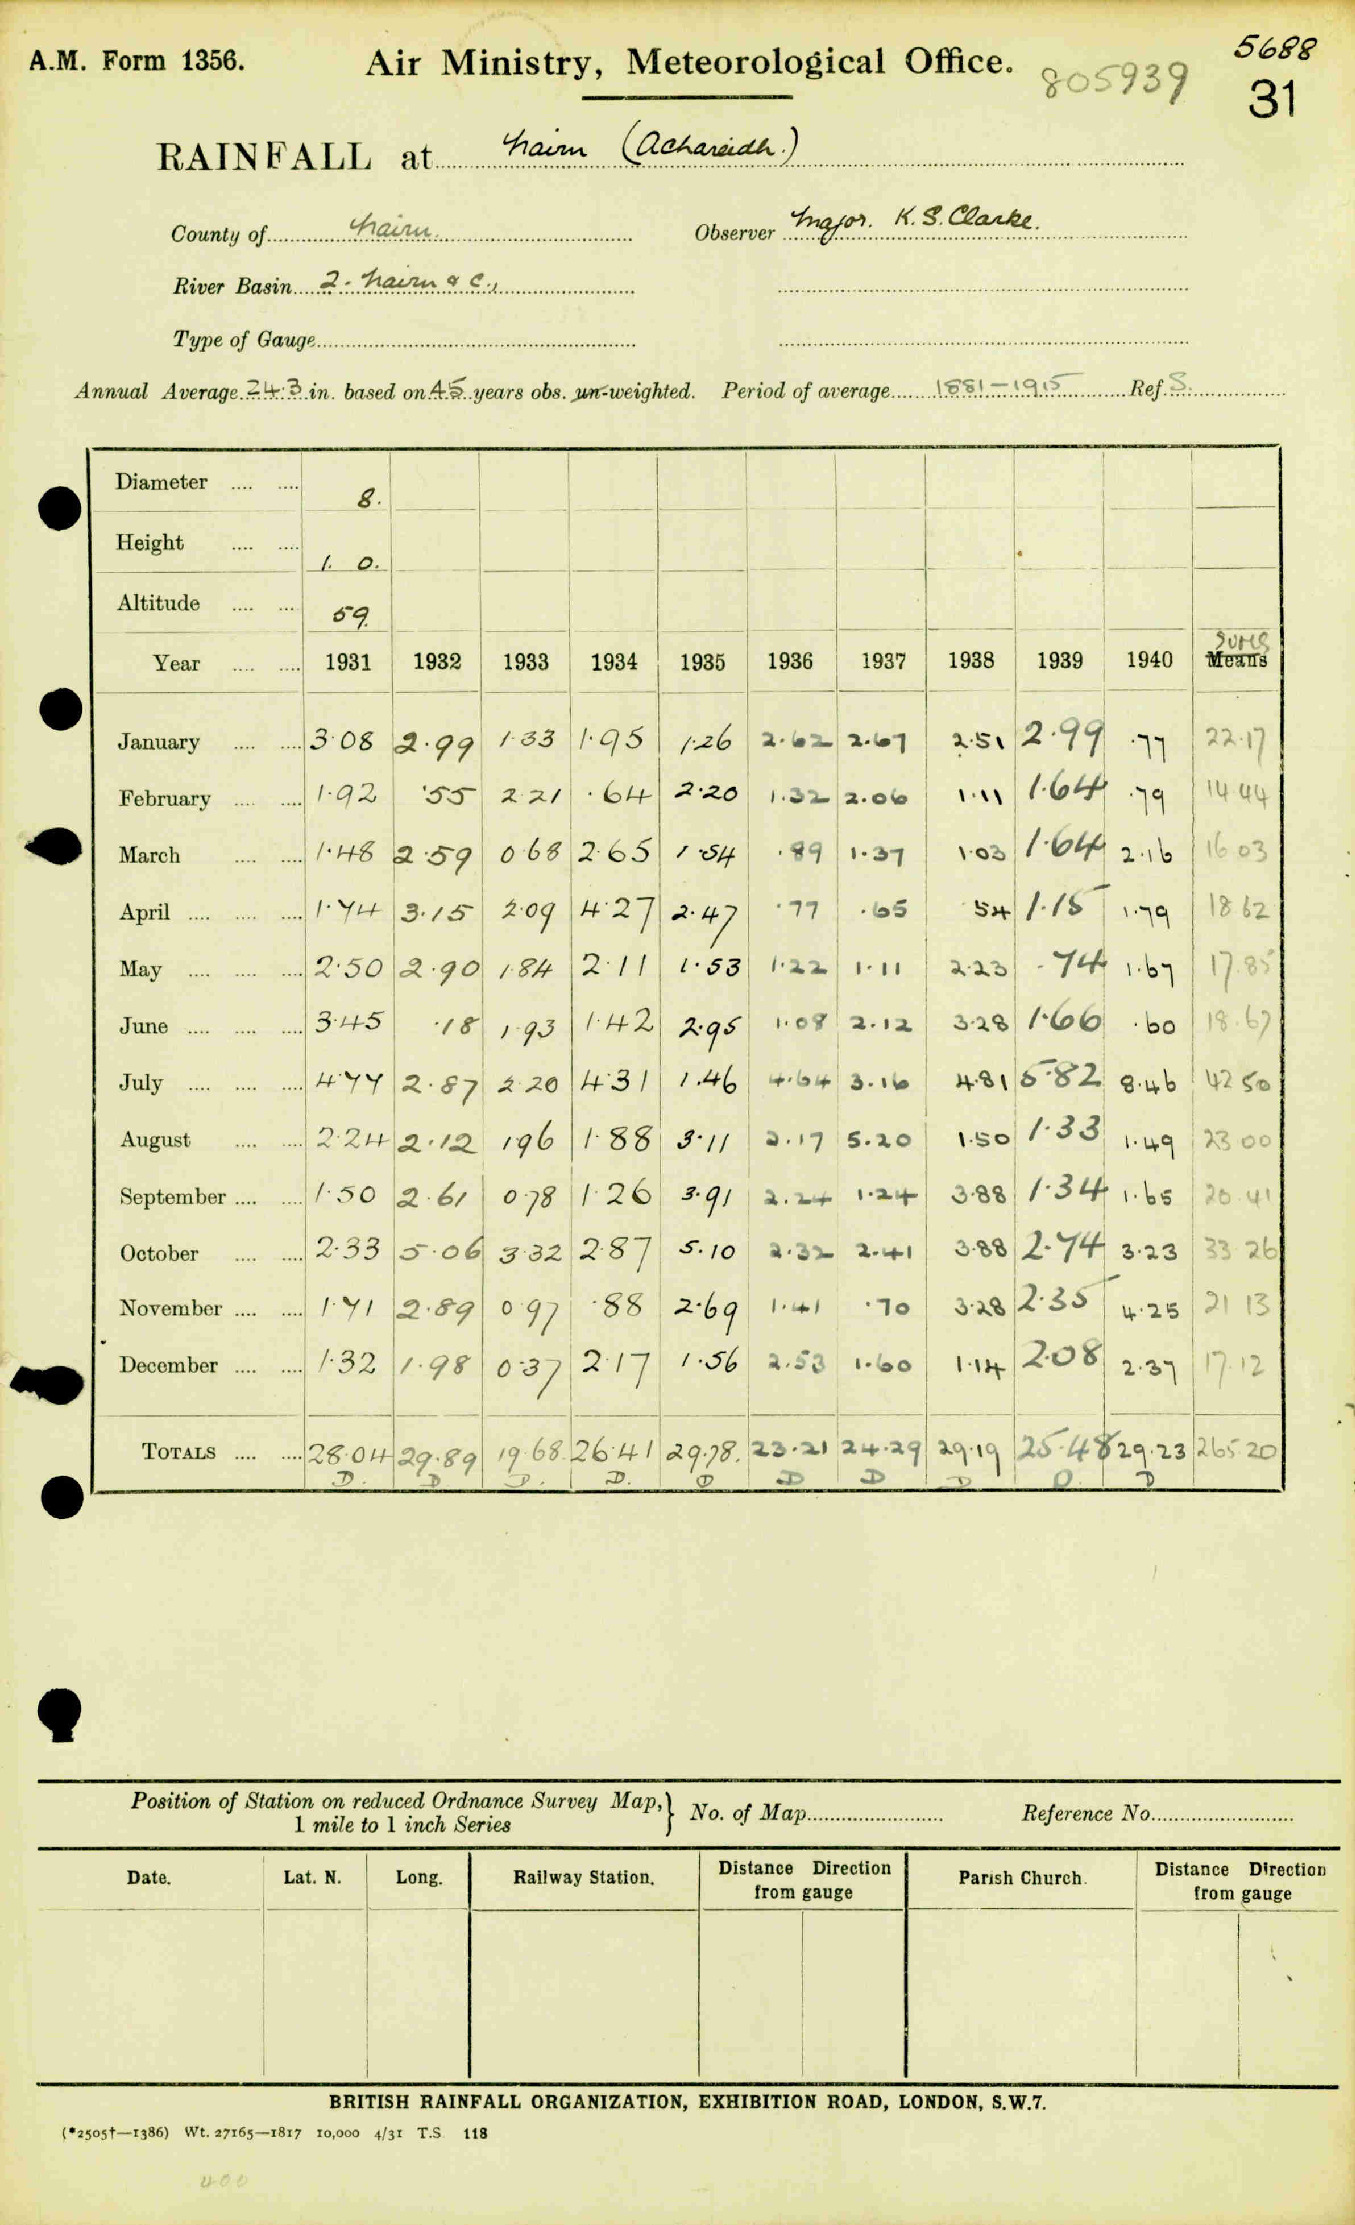 A.M. Form 1356.
Air Ministry, Meteorological Office.
805939
5688
31
RAINFALL at Nairn (Achareidh.)
County of Nairn. Observer Major. K. S. Clarke.
River Basin 2. Nairn & C.,
Type of Gauge
Annual Average 24.3 in. based on 45 years obs. un-weighted. Period of average 1881-1915 Ref. S.
Diameter 8.
Height 1. 0.
Altitude 59.
Sums
Year 1931 1932 1933 1934 1935 1936 1937 1938 1939 1940 Means
January 3.08 2.99 1.33 1.95 1.26 2.62 2.67 2.51 2.99 .77 22.17
February 1.92 .55 2.21 .64 2.20 1.32 2.06 1.11 1.64 .79 14.44
March 1.48 2.59 0.68 2.65 1.54 .89 1.37 1.03 1.64 2.16 16.03
April 1.74 3.15 2.09 4.27 2.47 .77 .65 .54 1.15 1.79 18.62
May 2.50 2.90 1.84 2.11 1.53 1.22 1.11 2.23 .74 1.67 17.85
June 3.45 .18 1.93 1.42 2.95 1.08 2.12 3.28 1.66 .60 18.67
July 4.77 2.87 2.20 4.31 1.46 4.64 3.16 4.81 5.82 8.46 42.50
August 2.24 2.12 1.96 1.88 3.11 2.17 5.20 1.50 1.33 1.49 23.00
September 1.50 2.61 0.78 1.26 3.91 2.24 1.24 3.88 1.34 1.65 20.41
October 2.33 5.06 3.32 2.87 5.10 2.32 2.41 3.88 2.74 3.23 33.26
November 1.71 2.89 0.97 .88 2.69 1.41 .70 3.28 2.35 4.25 21.13
December 1.32 1.98 0.37 2.17 1.56 2.53 1.60 1.14 2.08 2.37 17.12
TOTALS 28.04 29.89 19.68. 26.41 29.78. 23.21 24.29 29.19 25.48 29.23 265.20
D. D. D. D. D D D D D. D
Position of Station on reduced Ordnance Survey Map, } No. of Map Reference No.
1 mile to 1 inch Series
Date. Lat. N. Long. Railway Station. Distance Direction from gauge Parish Church. Distance Direction from gauge
BRITISH RAINFALL ORGANIZATION, EXHIBITION ROAD, LONDON, S.W.7.
(*2505†—1386) Wt. 27165—1817 10,000 4/31 T.S. 118
400